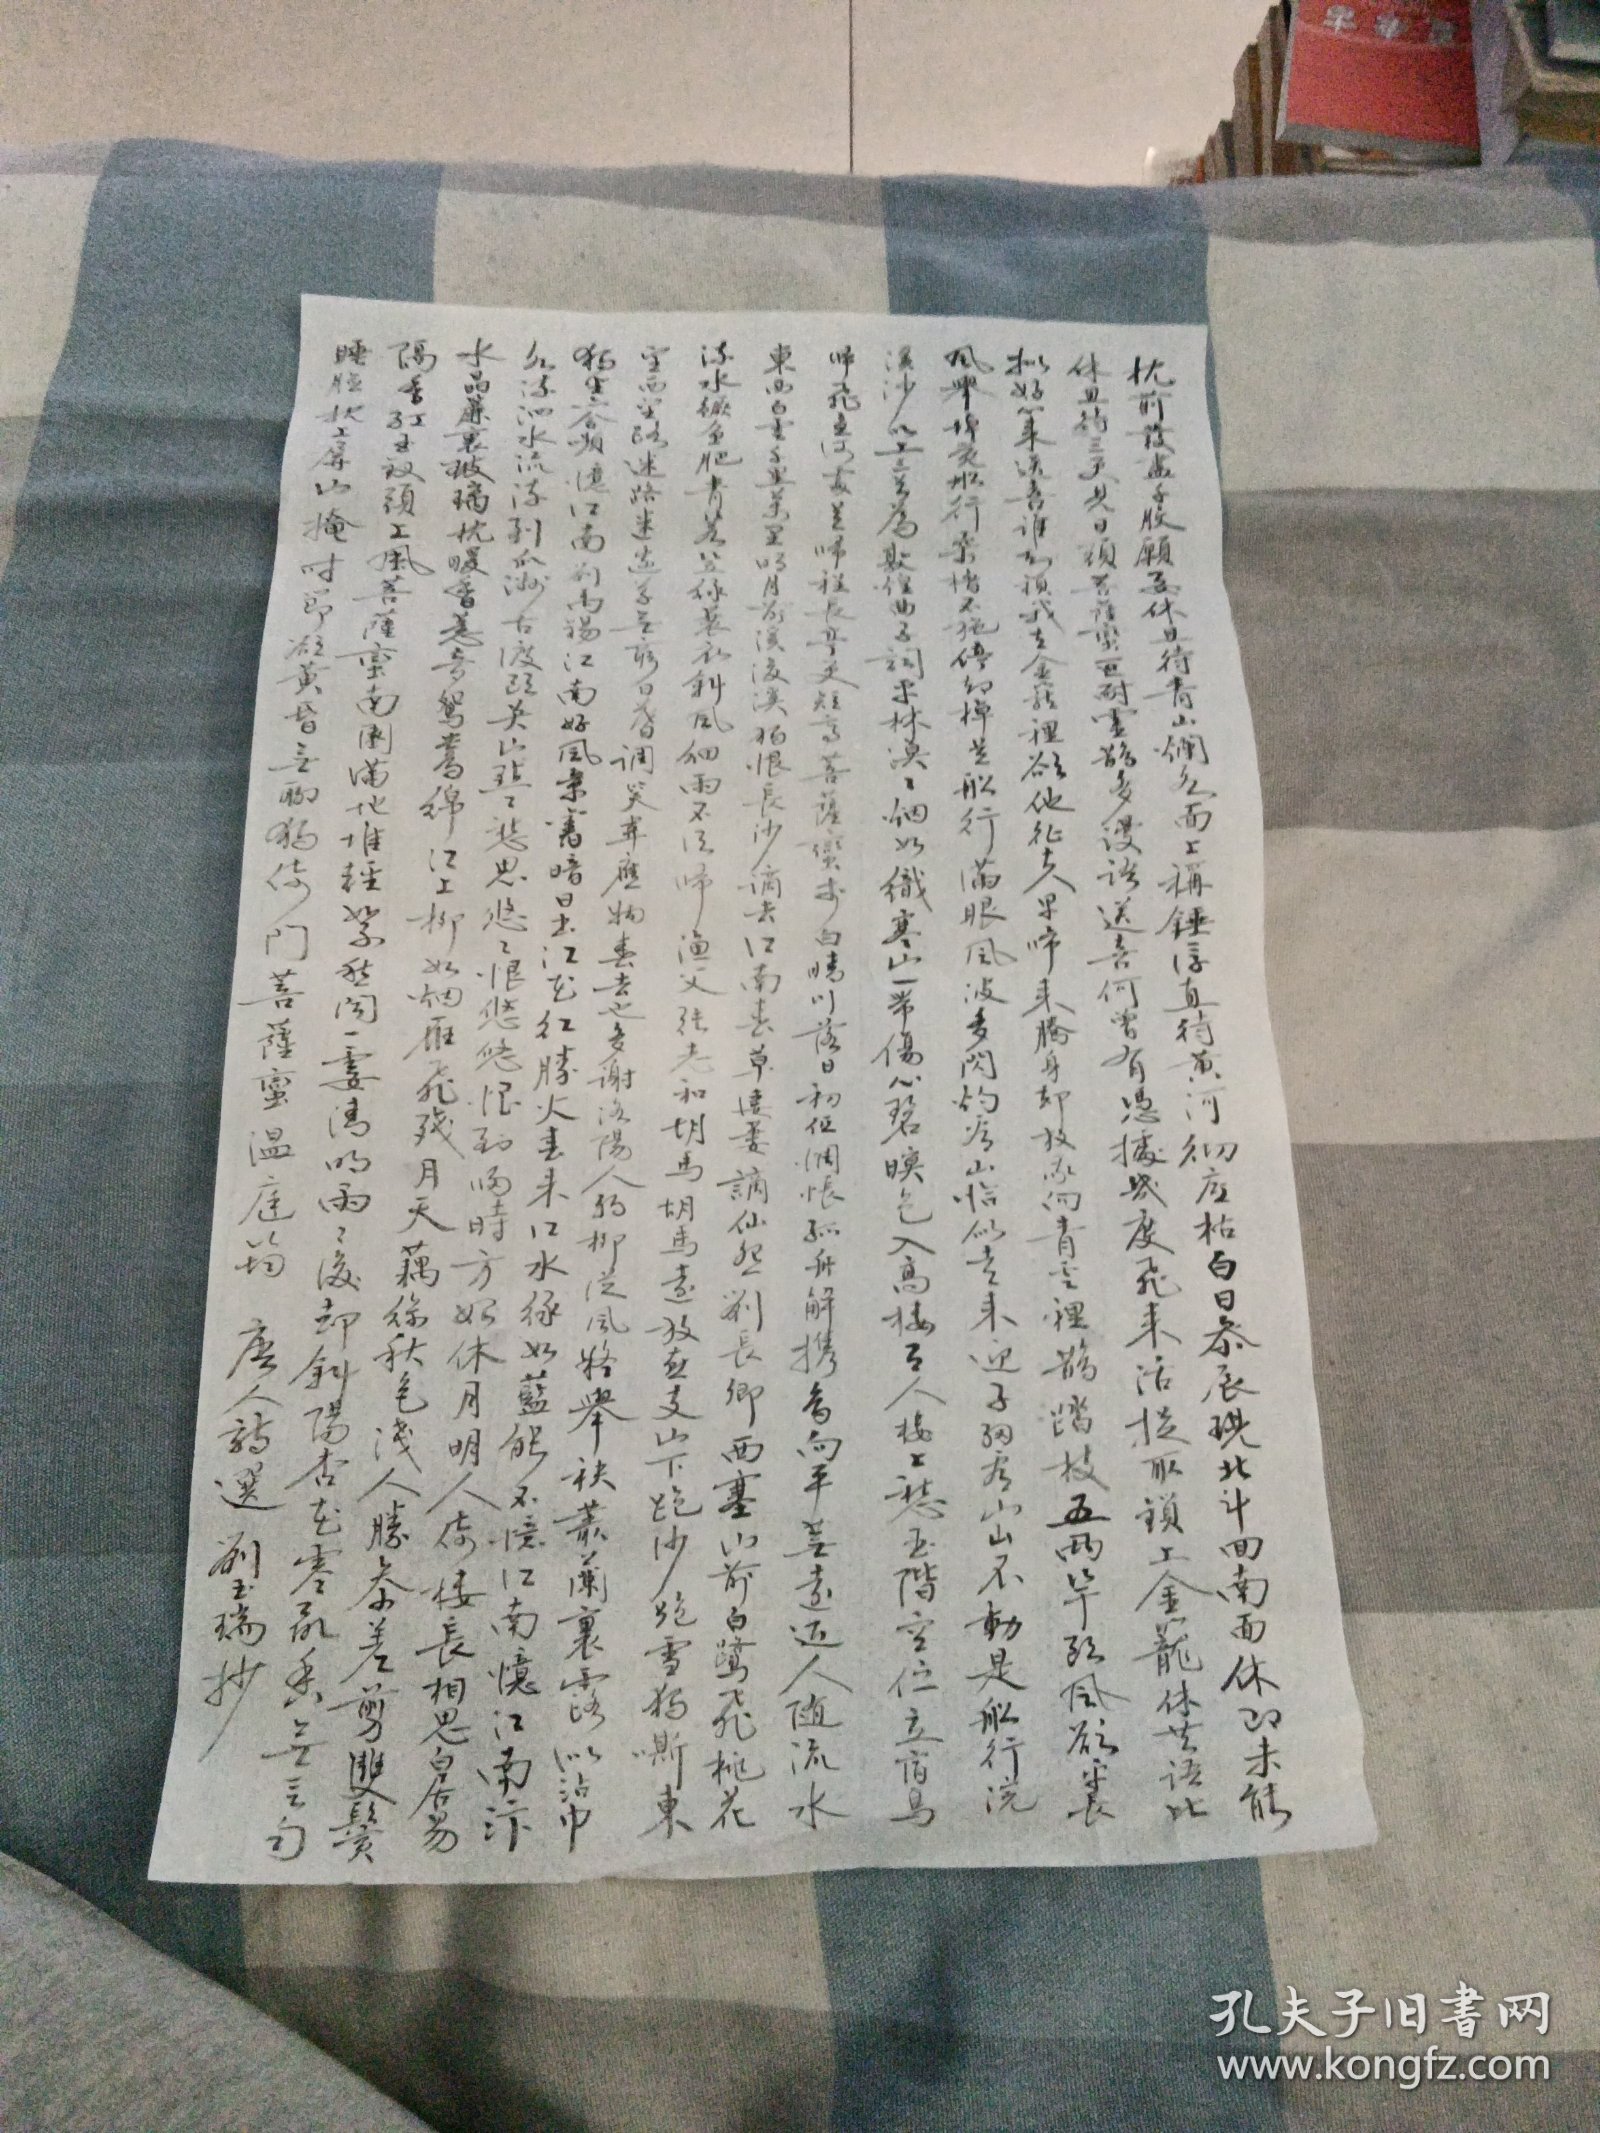 枕前發盡千般願要休且待青山爛水面上稱錘浮直待黃河徹底枯白日參辰現北斗回南面休即未能
休且待三更見日頭菩薩蠻叵耐靈鵲多謾語送喜何曾有憑據幾度飛來活捉取鎖上金籠休共語比
擬好心來送喜誰知鎖我在金籠裡欲他征夫早歸來騰身卻放我向青雲裡鵲踏枝五兩竿頭風欲平長
風舉棹覺船行柔櫓不施停卻棹是船行滿眼風波多閃灼看山恰似走來迎子細看山山不動是船行浣
溪沙以上 為敦煌曲子詞平林漠々烟如織寒山一帶傷心碧暝色入高樓有人樓上愁玉階空佇立宿鳥
歸飛急何處是歸程長亭更短亭菩薩蠻李白晴川落日初低惆悵孤舟解攜鳥向平蕪遠近人隨流水
東西白雲千里萬里明月前溪後溪獨恨長沙謫去江南春草萋萋謫仙怨劉長卿西塞山前白鷺飛桃花
流水鱖魚肥青箬笠綠蓑衣斜風細雨不須歸漁父張志和胡馬胡馬遠放燕支山下跑沙跑雪獨嘶東
望西望路迷路迷迷路邊草無窮日暮調笑韋應物春去也多謝洛陽人弱柳從風將舉袂叢蘭裛露似沾巾
獨坐亦含嚬憶江南劉禹錫江南好風景舊曾諳日出江花紅勝火春來江水綠如藍能不憶江南憶江南汴
水流泗水流流到瓜洲古渡頭吳山點々愁思悠々恨悠悠恨到歸時方始休月明人倚樓長相思白居易
水晶簾裏玻璃枕暖香惹夢鴛鴦錦江上柳如烟雁飛殘月天藕絲秋色淺人勝參差剪雙鬢
隔香紅玉釵頭上風菩薩蠻南園滿地堆輕絮愁聞一霎清明雨々後卻斜陽杏花零落香無言勻
睡臉枕上屏山掩時節欲黃昏無聊獨倚門菩薩蠻溫庭筠 唐人詩選 劉玉瑞抄
孔夫子旧书网
www.kongfz.com